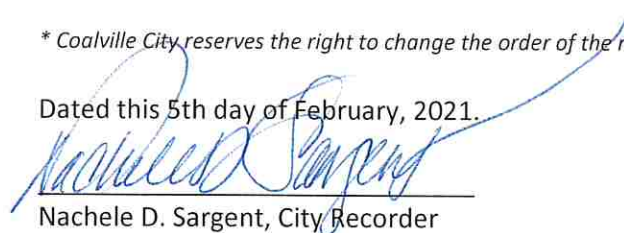 * Coalville City reserves the right to change the order of the
Dated this 5th day of February, 2021.
Nachele D. Sargent
Nachele D. Sargent, City Recorder